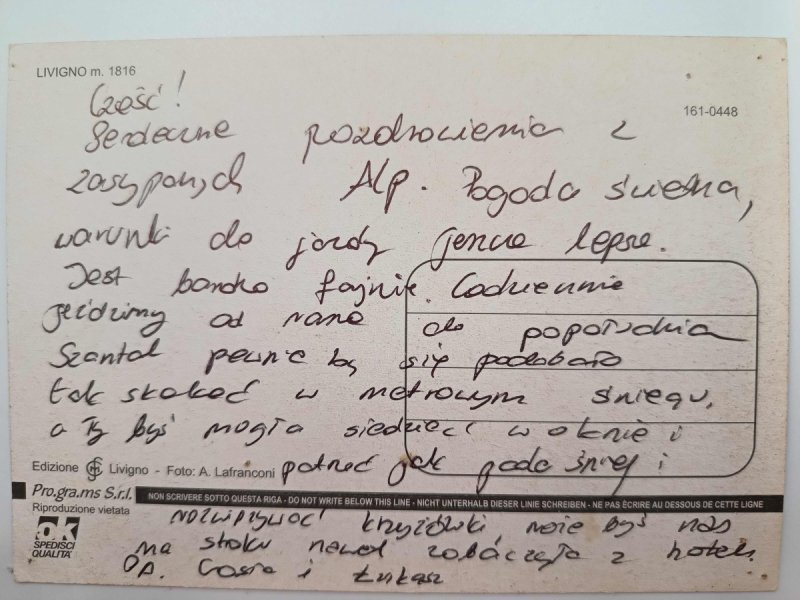 LIVIGNO m. 1816
161-0448
Cześć!
Serdeczne pozdrowienia z
zasypanych Alp. Pogoda świetna,
warunki do jazdy jeszcze lepsze.
Jest bardzo fajnie. Codziennie
jeździmy od rana do popołudnia
Szantal pewnie by się podobało
tak skakać w metrowym śniegu,
a Ty byś mogła siedzieć w oknie i
Edizione Livigno - Foto: A. Lafranconi patrzeć jak pada śnieg i
Pro.gra.ms S.r.l. NON SCRIVERE SOTTO QUESTA RIGA - DO NOT WRITE BELOW THIS LINE - NICHT UNTERHALB DIESER LINIE SCHREIBEN - NE PAS ÈCRIRE AU DESSOUS DE CETTE LIGNE
Riproduzione vietata
rozwiązywać krzyżówki może byś nas
ok
SPEDISCI QUALITA'
na stoku nawet zobaczyła z hotelu.
i Łukasz